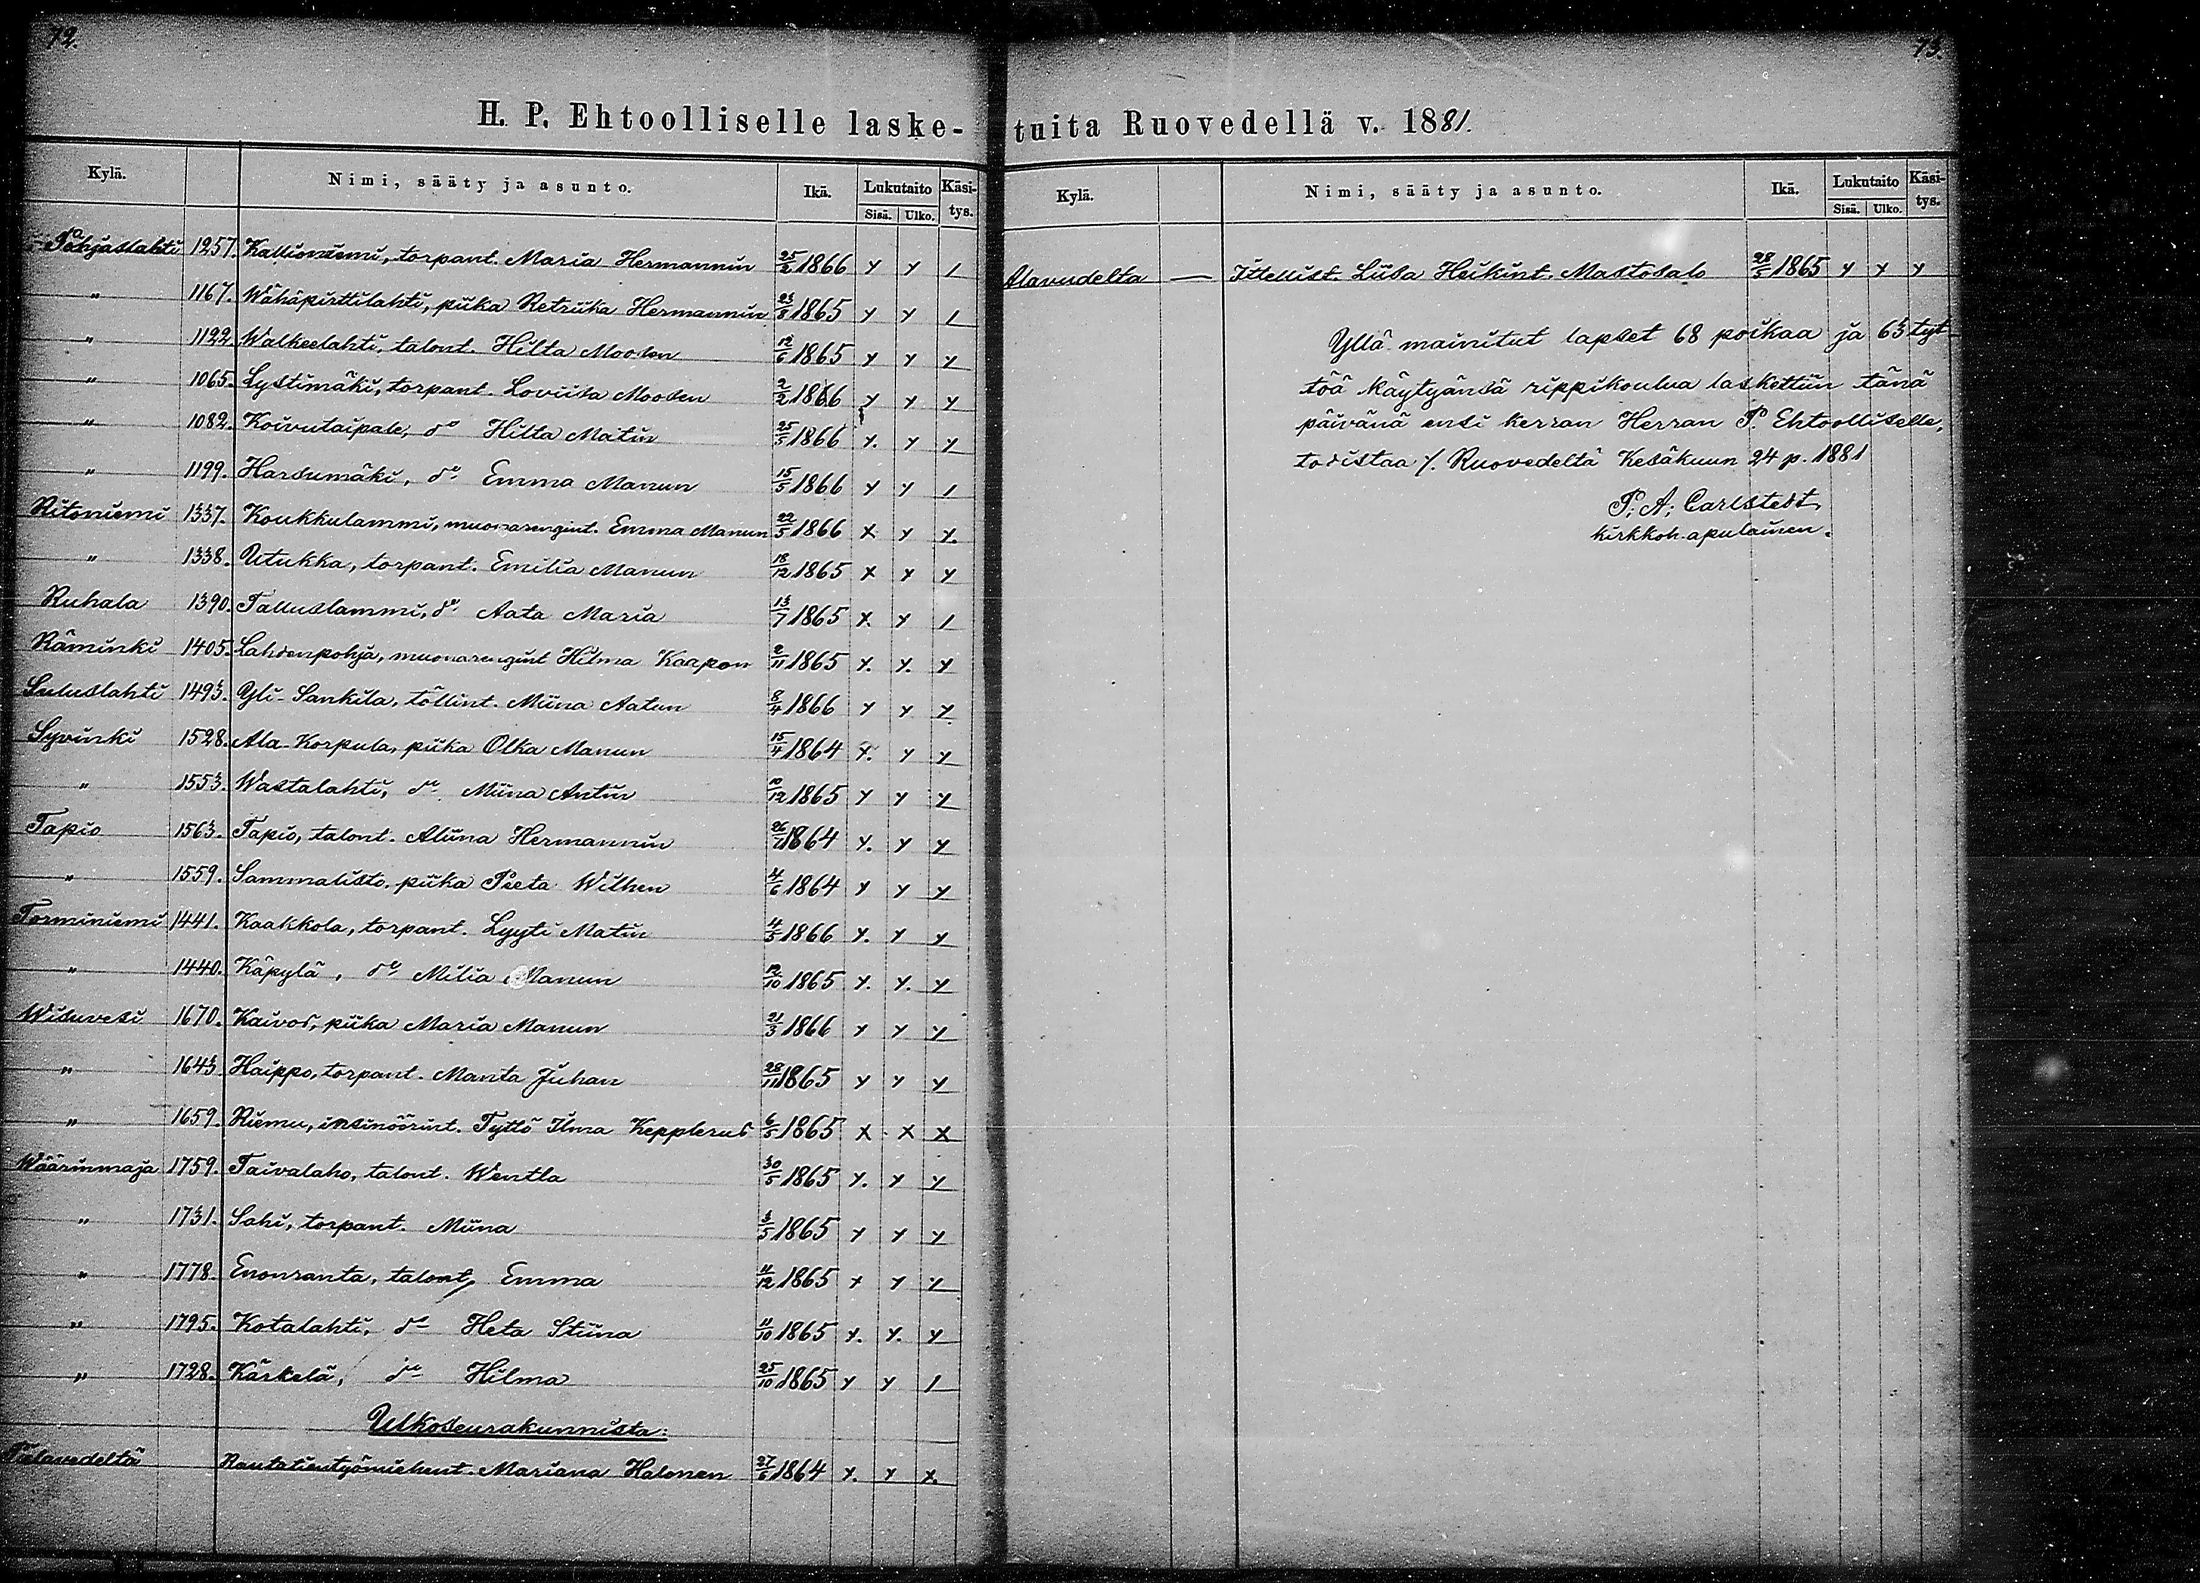 72.
H. P. Ehtoolliselle laske-
Kylä. Nimi, sääty ja asunto. Ikä. Lukutaito Käsi-
Sisä. Ulko. tys.
Pohjaslahti 1257. Kallioniemi, torpant. Maria Hermannin 25/2 1866 y y 1
" 1167. Wähäpirttilahti, piika Retriika Hermannin 23/8 1865 y y 1
" 1122. Walkeelahti, talont. Hilta Moosen 12/6 1865 y y y
" 1065. Lystimäki, torpant. Loviisa Moosen 2/2 1866 y y y
" 1082. Koivutaipale, d:o Hilta Matin 25/5 1866 y. y y
" 1199. Harsumäki, d:o Emma Manun 15/5 1866 y y 1
Ritoniemi 1337. Koukkulammi, muonarengint. Emma Manun 22/5 1866 x y y.
" 1338. Utukka, torpant. Emilia Manun 18/12 1865 x y y
Ruhala 1390. Talluslammi, d:o Aata Maria 13/7 1865 y. y 1
Räminki 1405. Lahdenpohja, muonarengint Hilma Kaapon 2/11 1865 y. y. y
Suluslahti 1493. Yli-Sankila, töllint. Miina Aatun 8/4 1866 y y y
Syvinki 1528. Ala-Korpula, piika Olka Manun 15/4 1864 y. y y
" 1553. Wastalahti, d:o Miina Antin 10/12 1865 y y y
Tapio 1563. Tapio, talont. Aliina Hermannin 26/7 1864 y. y y
" 1559. Sammalisto, piika Peeta Wilhen 4/6 1864 y y y
Torminiemi 1441. Kaakkola, torpant. Lyyti Matin 4/5 1866 y. y y
" 1440. Käpylä, d:o Milia Manun 12/10 1865 y. y. y
Wisuvesi 1670. Kaivos, piika Maria Manun 21/3 1866 y y y
" 1643. Haippo, torpant. Manta Juhan 28/11 1865 y y y
" 1659. Riemu, insinöörint. Tyttö Ilma Kepplerus 6/5 1865 x x x
Wäärinmaja 1759. Taivalaho, talont. Wentla 30/5 1865 y. y y
" 1731. Sahi, torpant. Miina 3/5 1865 y y y
" 1778. Enonranta, talont, Emma 11/12 1865 y y y
" 1795. Kotalahti, d:o Heta Stiina 11/10 1865 y. y. y
" 1728. Kärkelä, d:o Hilma 25/10 1865 y y 1
Ulkoseurakunnista:
Pielavedeltä Rautatientyömiehent. Mariana Halonen 27/6 1864 y. y y.
73.
tuita Ruovedellä v. 1881.
Kylä. Nimi, sääty ja asunto. Ikä. Lukutaito Käsi-
Sisä. Ulko. tys.
Alavudelta — Ittellist. Liisa Heikint. Mastosalo 28/5 1865 y y y
Yllä mainitut lapset 68 poikaa ja 63 tyt-
töä käytyänsä rippikoulua laskettiin tänä
päivänä ensi kerran Herran P. Ehtoolliselle,
todistaa /. Ruovedeltä Kesäkuun 24 p. 1881
P. A. Carlstedt,
kirkkoh. apulainen.